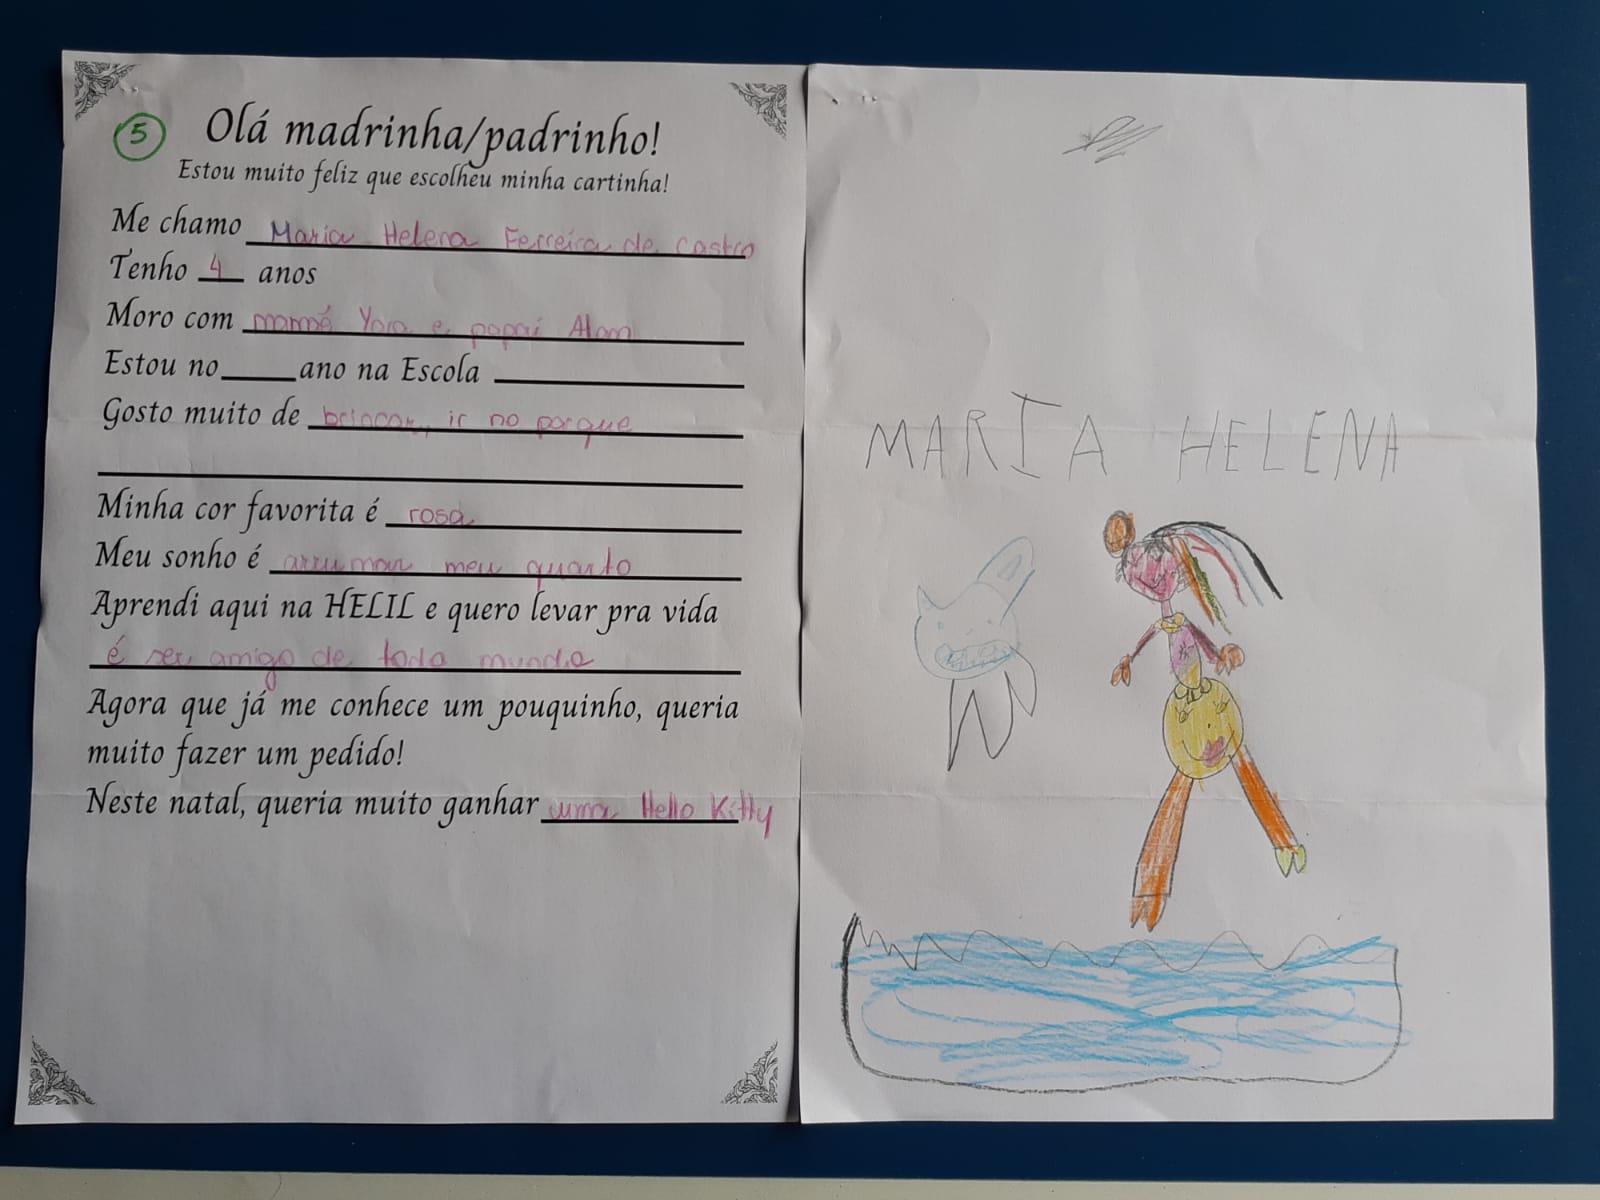 5
Olá madrinha/padrinho!
Estou muito feliz que escolheu minha cartinha!
Me chamo Maria Helena Ferreira de Castro
Tenho 4 anos
Moro com mamãe Yara e papai Alan
Estou no ano na Escola
Gosto muito de brincar, ir no parque
Minha cor favorita é rosa
Meu sonho é arrumar meu quarto
Aprendi aqui na HELIL e quero levar pra vida
é ser amigo de todo mundo
Agora que já me conhece um pouquinho, queria
muito fazer um pedido!
Neste natal, queria muito ganhar uma Hello Kitty
MARIA HELENA